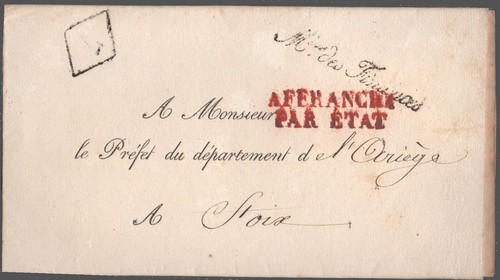 Mère des Finances
AFFRANCHI
PAR ÉTAT
A Monsieur
le Préfet du département de l'Ariège
A Foix